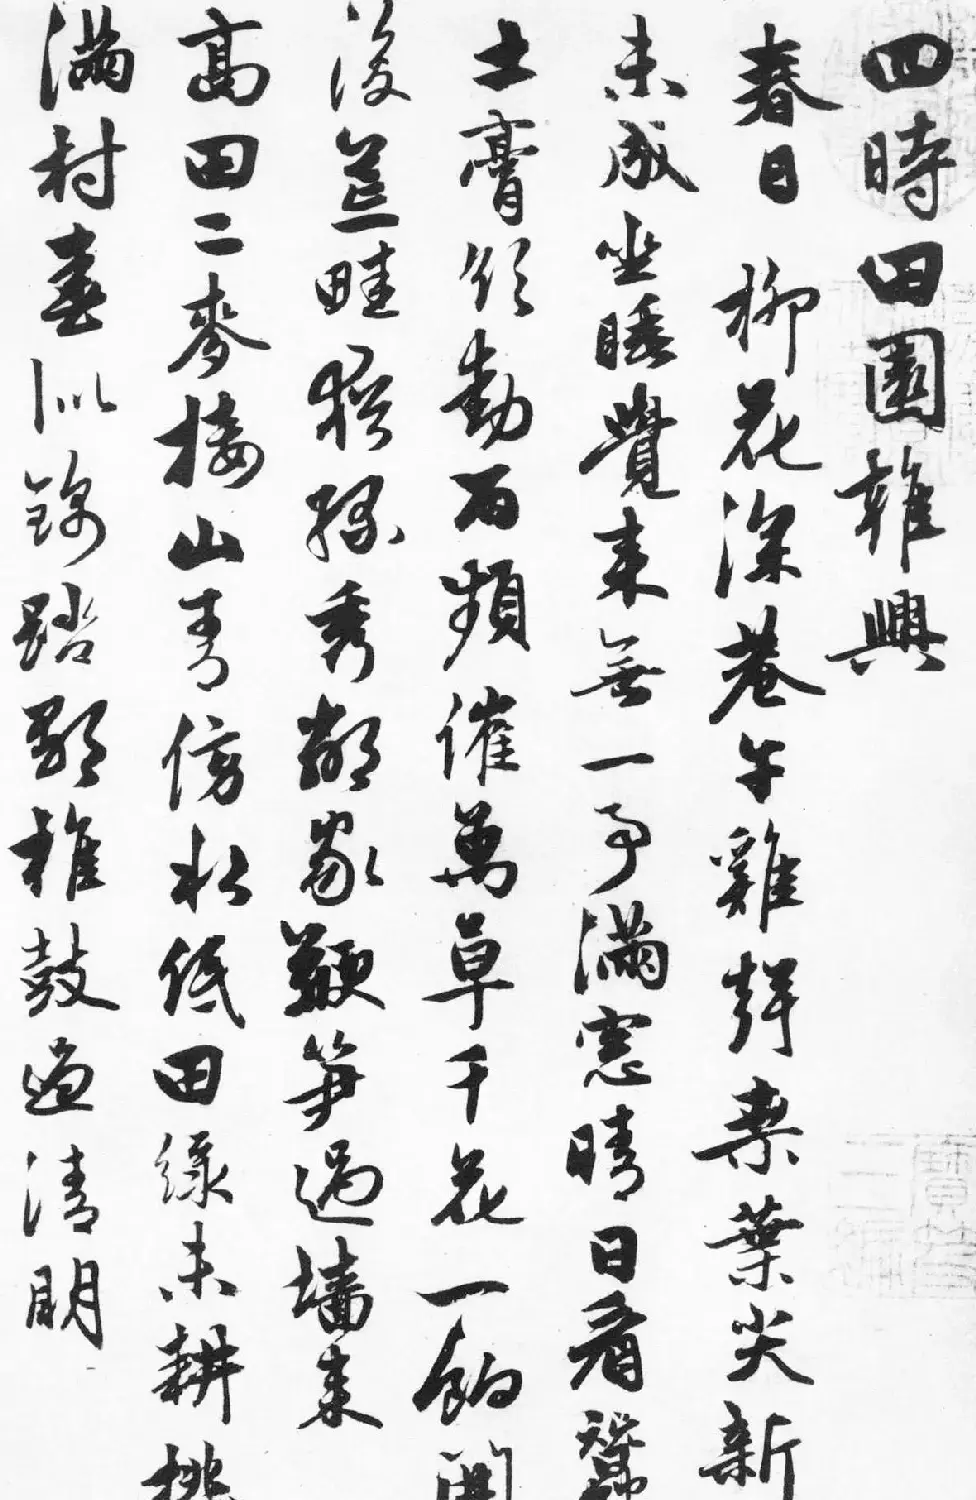 四時田園雜興
春日 柳花深巷午雞聲桒葉尖新
未成坐睡覺來無一事滿窻晴日看蠶
土膏欲動雨頻催萬草千花一餉開
後荒畦猶綠秀鄰家鞭筍過墻來
高田二麥接山青傍水低田綠未耕桃
滿村春似錦踏歌椎鼓過清明